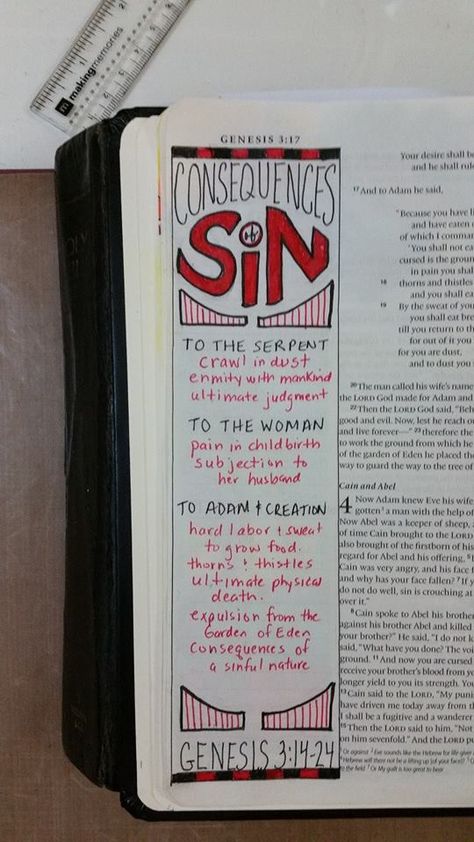 making memories
GENESIS 3:17
CONSEQUENCES
of
SiN
TO THE SERPENT
crawl in dust
enmity with mankind
ultimate judgment
TO THE WOMAN
pain in childbirth
subjection to
her husband
TO ADAM & CREATION
hard labor & sweat
to grow food.
thorns & thistles
ultimate physical
death.
expulsion from the
Garden of Eden
Consequences of
a sinful nature
GENESIS 3:14-24
Your desire shall be
and he shall rule
17 And to Adam he said,
"Because you have li
and have eaten
of which I comman
'You shall not ea
cursed is the groun
in pain you shal
18 thorns and thistles
and you shall ea
19 By the sweat of you
you shall eat bre
till you return to th
for out of it you
for you are dust,
and to dust you
20 The man called his wife's name
the LORD God made for Adam and
22 Then the LORD God said, "Beh
good and evil. Now, lest he reach o
and live forever—" 23 therefore the
to work the ground from which he
of the garden of Eden he placed the
way to guard the way to the tree of
Cain and Abel
4 Now Adam knew Eve his wife,
gotten a man with the help of
Now Abel was a keeper of sheep,
of time Cain brought to the LORD
also brought of the firstborn of his
regard for Abel and his offering, 5
Cain was very angry, and his face f
and why has your face fallen? 7 If y
do not do well, sin is crouching at
over it."
8 Cain spoke to Abel his brother
against his brother Abel and killed
your brother?" He said, "I do not k
said, "What have you done? The voi
ground. 11 And now you are cursed
receive your brother's blood from yo
longer yield to you its strength. You
13 Cain said to the LORD, "My puni
have driven me today away from th
I shall be a fugitive and a wanderer
15 Then the LORD said to him, "Not
on him sevenfold." And the LORD pu